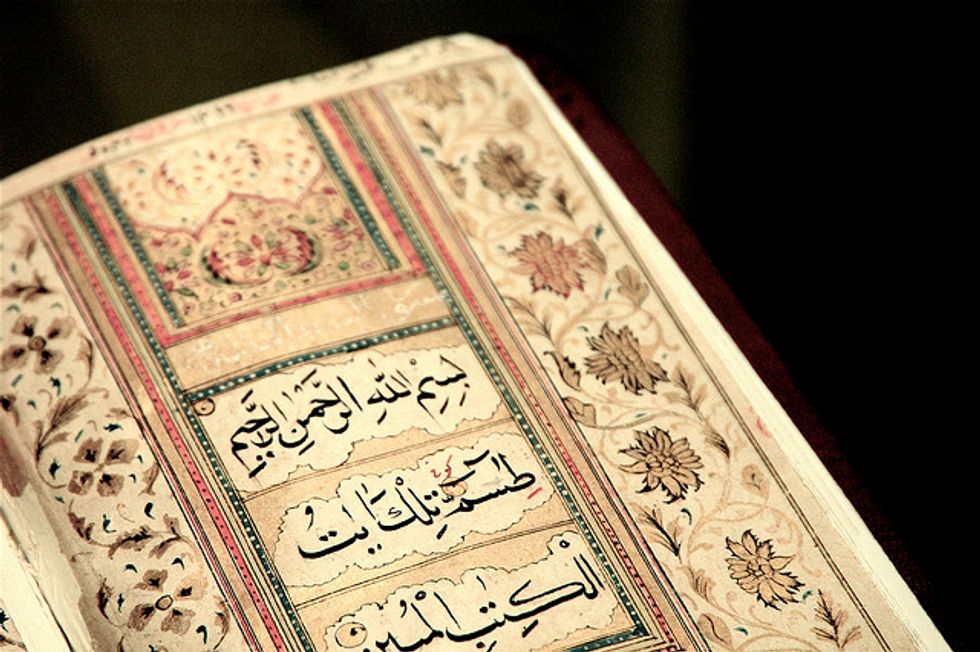 بِسْمِ اللّٰهِ الرَّحْمٰنِ الرَّحِيْمِ
طٰسٓمّٓ تِلْكَ اٰيٰتُ
الْكِتٰبِ الْمُبِيْنِ